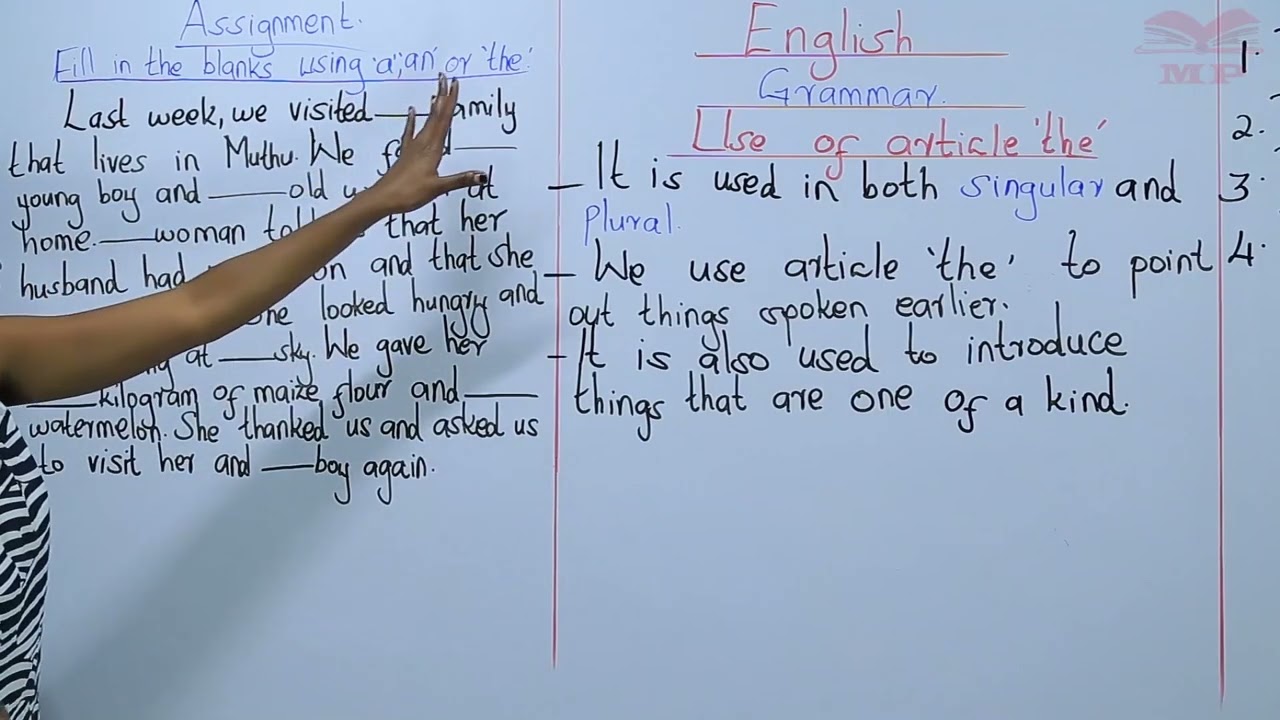 Assignment.
Fill in the blanks using 'a', 'an' or 'the'.
Last week, we visited ____ family
that lives in Muthu. We ____
young boy and ____ old at
home. ____ woman that her
husband had and that she
looked hungry and
at ____ sky. We gave her
____ kilogram of maize flour and ____
watermelon. She thanked us and asked us
to visit her and ____ boy again.
English
Grammar.
Use of article 'the'
- It is used in both singular and
plural.
- We use article 'the' to point
out things spoken earlier.
- It is also used to introduce
things that are one of a kind.
MP
1.
2.
3.
4.